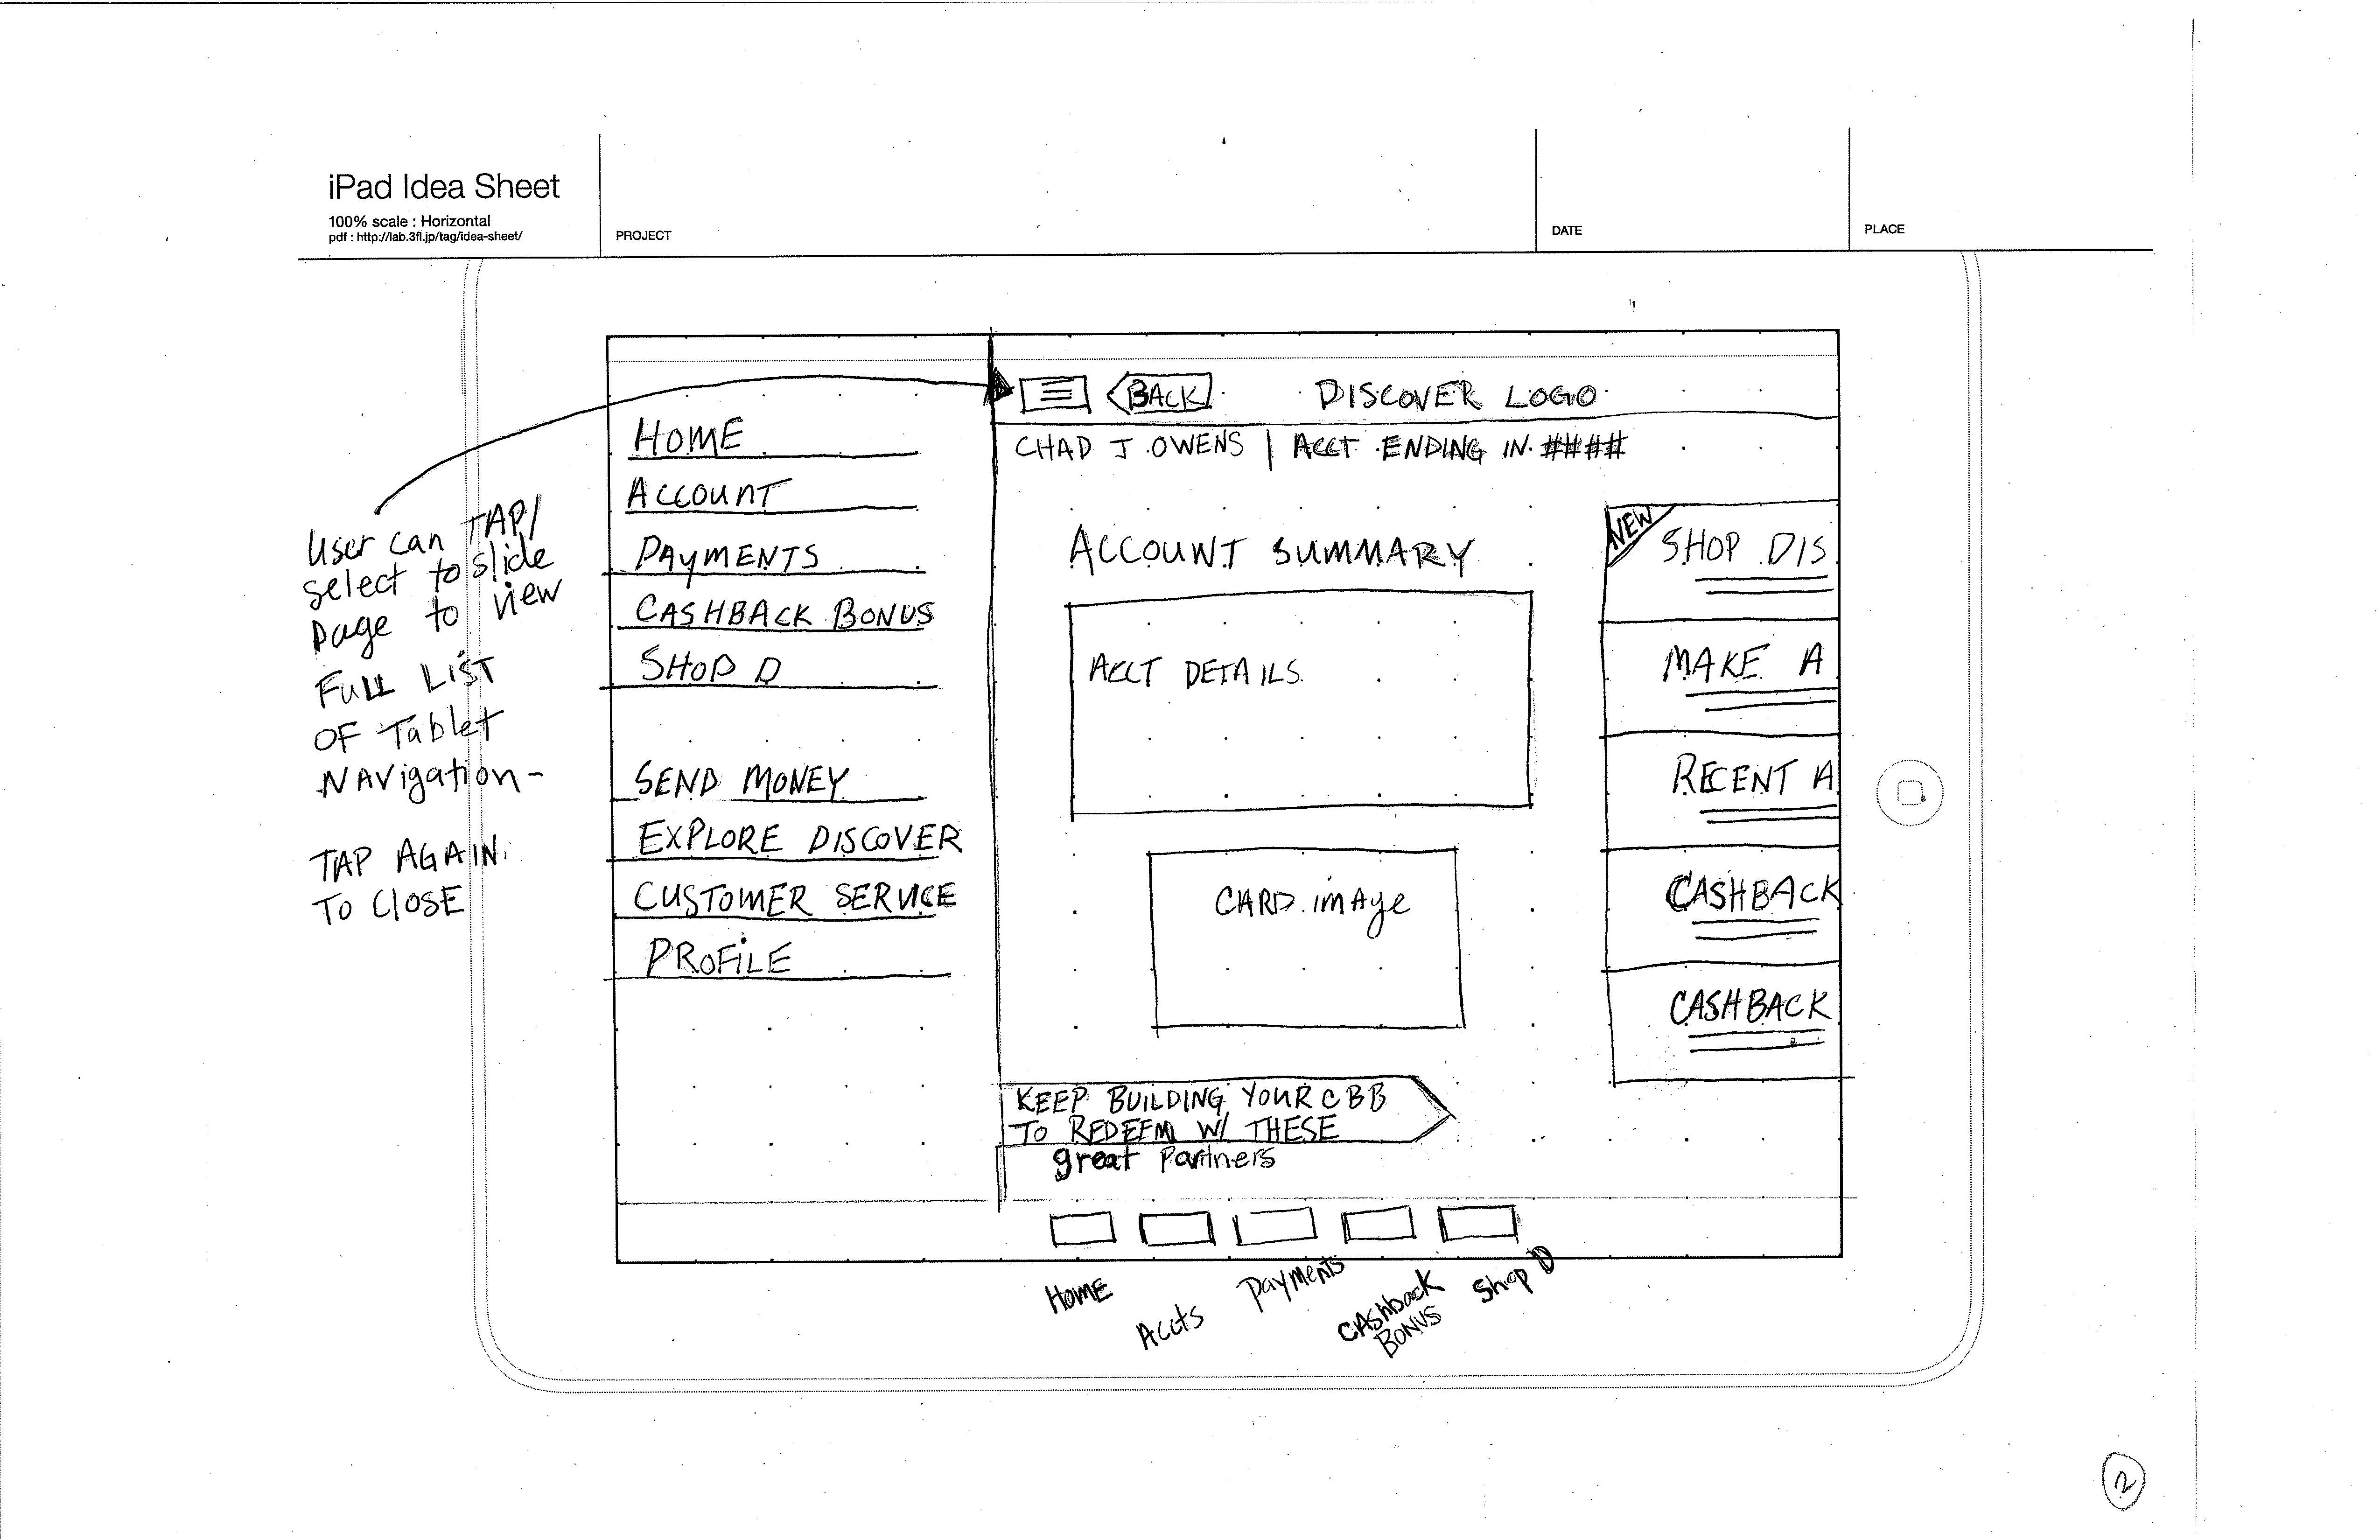 iPad Idea Sheet
100% scale : Horizontal
pdf : http://lab.3fl.jp/tag/idea-sheet/
PROJECT
DATE
PLACE
User can TAP/
select to slide
page to view
FULL LIST
OF Tablet
NAVigation-
TAP AGAIN
TO ClOSE
HOME
ACCOUNT
PAYMENTS
CASHBACK BONUS
SHOP D
SEND MONEY
EXPLORE DISCOVER
CUSTOMER SERVICE
PROFILE
BACK
DISCOVER LOGO
CHAD J OWENS | ACCT ENDING IN ####
ACCOUNT SUMMARY
ACCT DETAILS
CARD imAge
NEW
SHOP DIS
MAKE A
RECENT A
CASHBACK
CASHBACK
KEEP BUILDING YOUR CBB
TO REDEEM W/ THESE
great Partners
HOME
Accts
Payments
CAshback
BONUS
Shop D
2